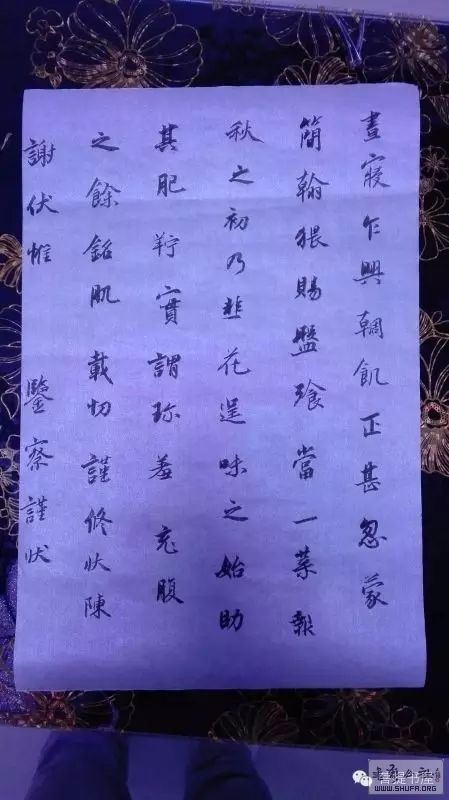 晝寢乍興輖飢正甚忽蒙
簡翰猥賜盤飱當一葉報
秋之初乃韭花逞味之始助
其肥羜實謂珍羞充腹
之餘銘肌載切謹修狀陳
謝伏惟鑒察謹狀
菩提书屋
WWW.SHUFA.ORG